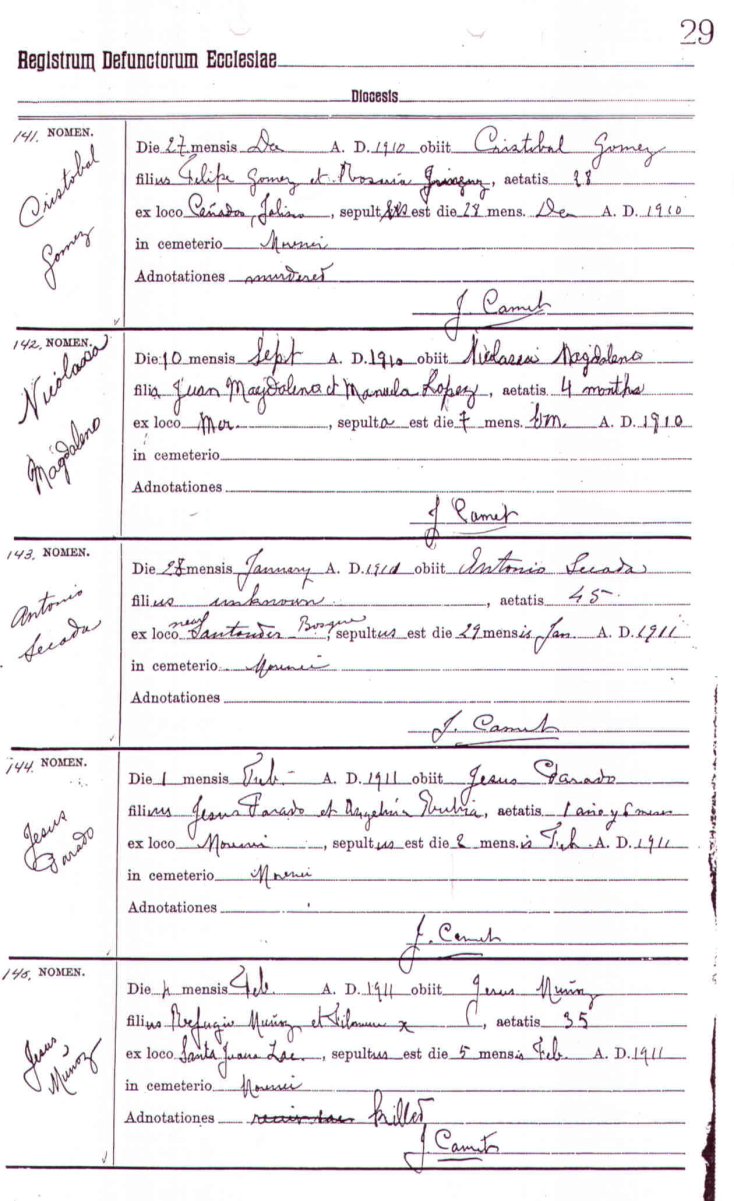 29
Registrum Defunctorum Ecclesiae
Diocesis
141. NOMEN.
Cristobal
Gomez
Die 27 mensis De A. D. 1910 obiit Cristobal Gomez
filius Felipe Gomez et Rosaria, aetatis 28
ex loco Cañados, Jalisco, sepult est die 28 mens. De A. D. 1910
in cemeterio Morenci
Adnotationes murdered
J. Camet
142. NOMEN.
Nicolasa
Magdaleno
Die 10 mensis Sept A. D. 1910 obiit Nicolasa Magdaleno
filia Juan Magdalena et Manuela Lopez, aetatis 4 months
ex loco Mor., sepulta est die 7 mens. A. D. 1910
in cemeterio
Adnotationes
J Camet
143. NOMEN.
Antonio
Secada
Die 28 mensis January A. D. 1911 obiit Antonio Secada
filius unknown, aetatis 45
ex loco near Santander Bosque, sepultus est die 29 mensis Jan. A. D. 1911
in cemeterio Morenci
Adnotationes
J. Camet
144. NOMEN.
Jesus
Parado
Die 1 mensis Feb. A. D. 1911 obiit Jesus Parado
filius Jesus Parado et Angelina, aetatis 1 año y 6 meses
ex loco Morenci, sepultus est die 2 mensis Feb. A. D. 1911
in cemeterio Morenci
Adnotationes
J. Camet
145. NOMEN.
Jesus
Muñoz
Die 4 mensis Feb. A. D. 1911 obiit Jesus Muñoz
filius Refugio Muñoz et Filomena x, aetatis 35
ex loco Santa Juana Zac., sepultus est die 5 mensis Feb. A. D. 1911
in cemeterio Morenci
Adnotationes killed
J. Camet